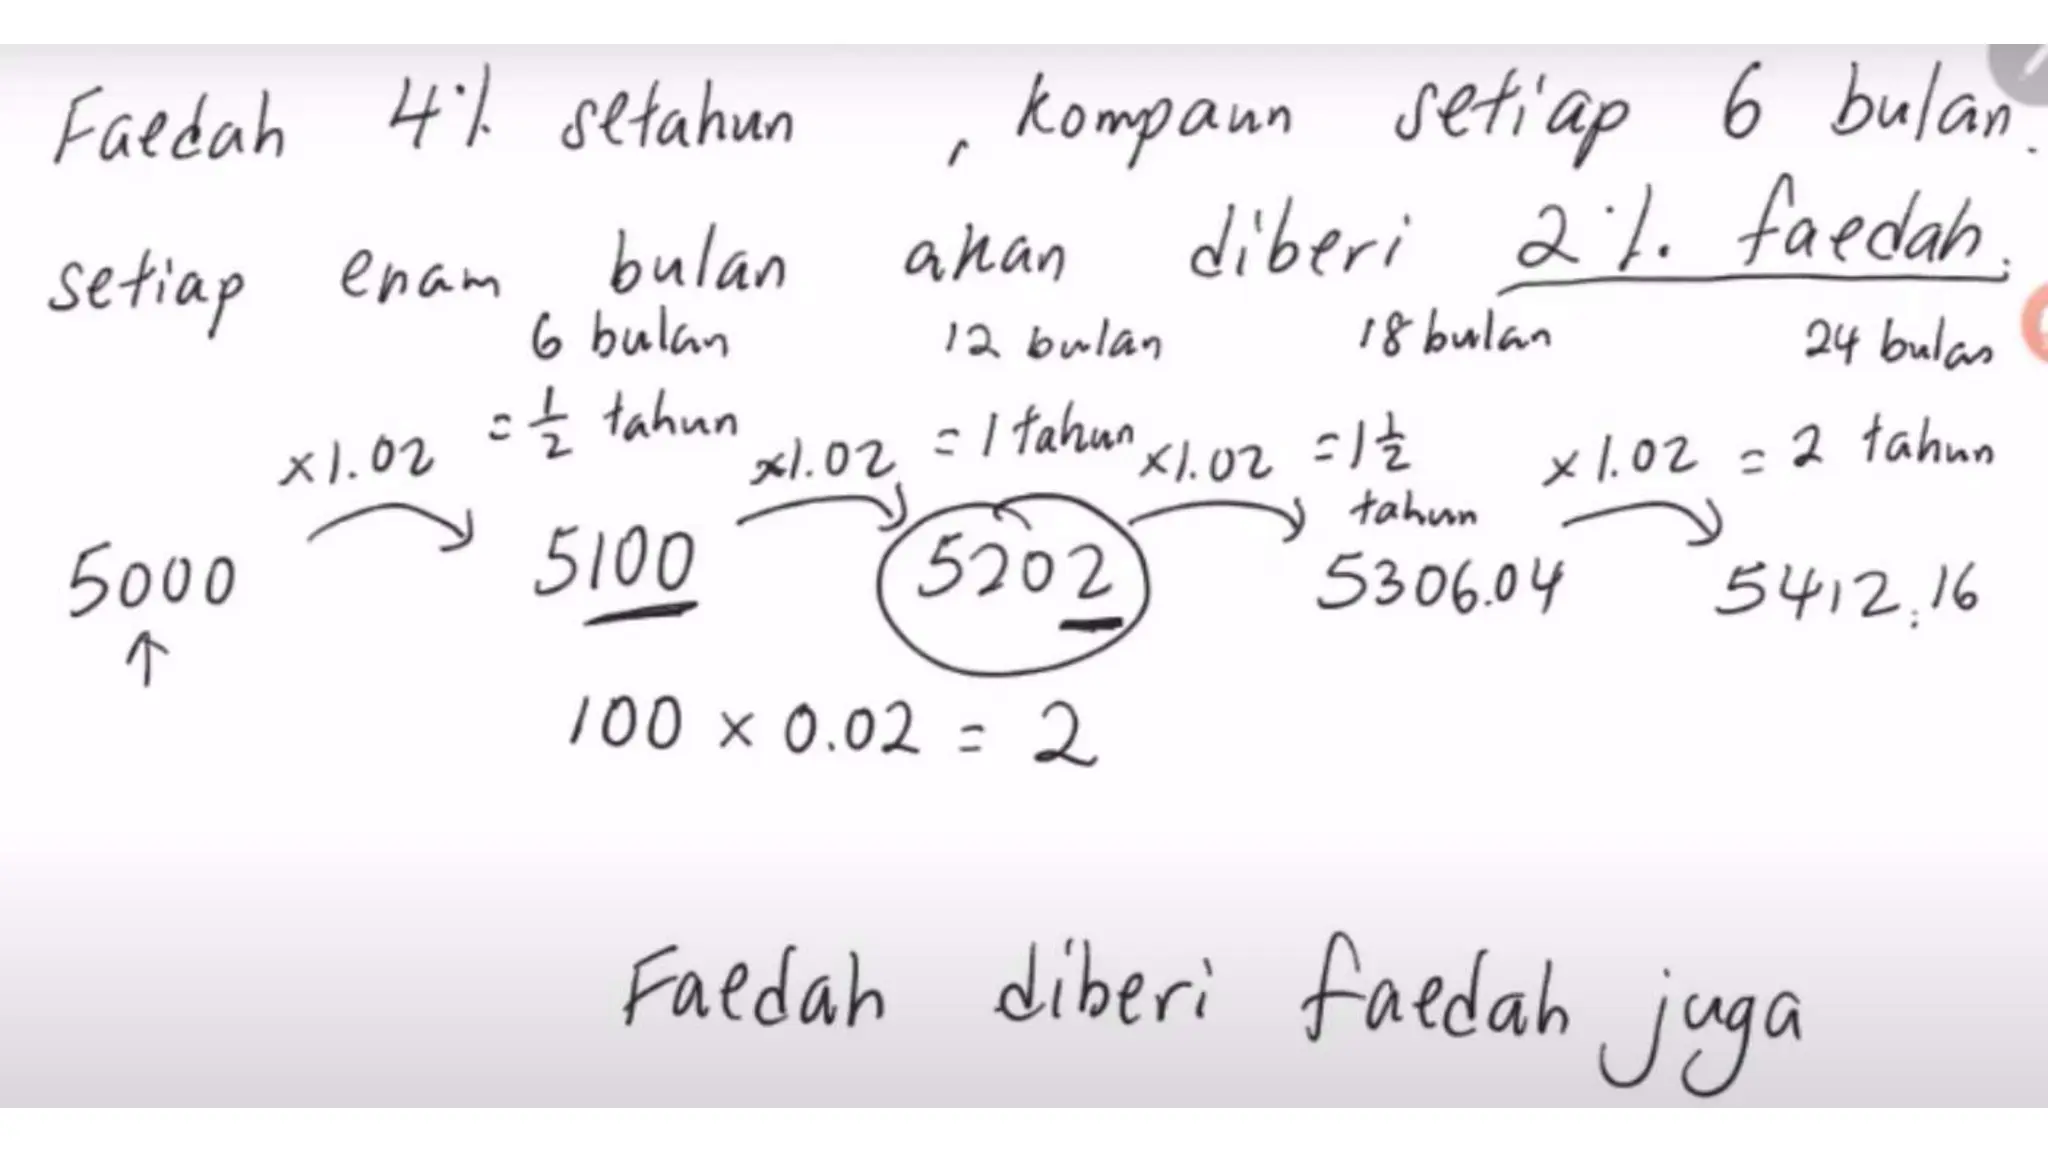 Faedah 4% setahun, kompaun setiap 6 bulan.
setiap enam bulan akan diberi 2%. faedah.
6 bulan 12 bulan 18 bulan 24 bulan
×1.02 = 1/2 tahun ×1.02 = 1 tahun ×1.02 = 1 1/2 tahun ×1.02 = 2 tahun
5000 5100 5202 5306.04 5412.16
100 × 0.02 = 2
Faedah diberi faedah juga